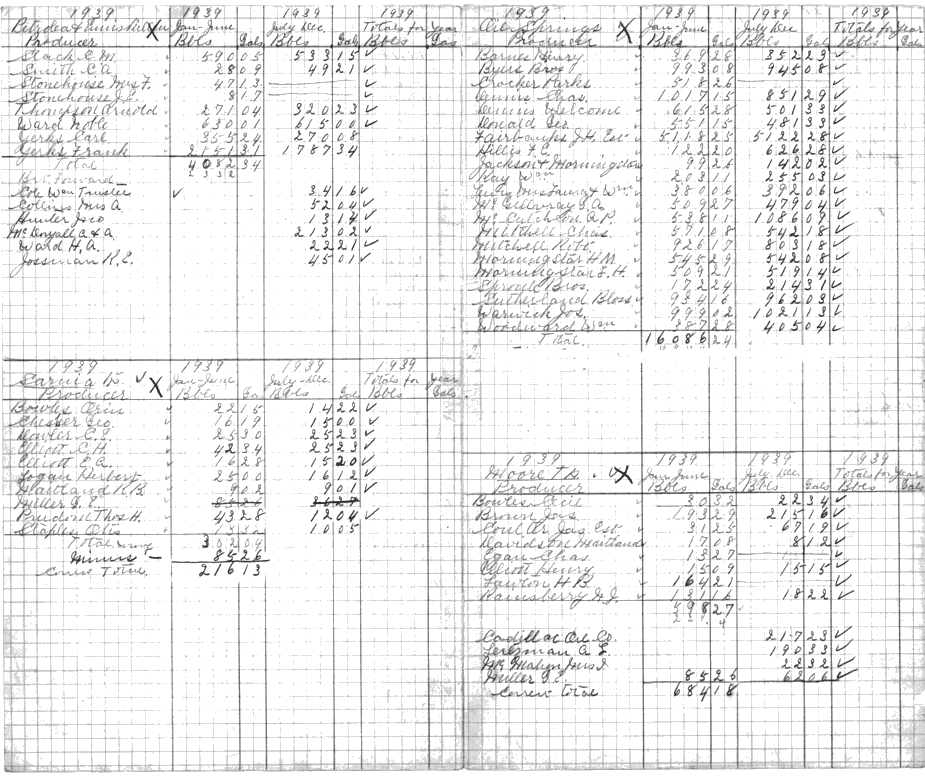 1939 1939 1939 1939
Jan-June July Dec. Totals for Year
Producer Bbls Gals Bbls Gals Bbls Gals
Stack C M. 590 05 533 15 ✓
Smith C A. 28 09 49 21 ✓
Stonehouse Mrs F. 47 13 ✓
Stonehouse 8 17 ✓
Thompson Arnold 271 04 320 23 ✓
Ward Noble 630 01 615 00 ✓
Yerks Carl 355 24 270 08
Yerks Frank 2151 31 1787 34
Total 4082 34
Bro't Forward
Cole Wm Trustee ✓ 34 16 ✓
Collins Mrs A 52 04 ✓
Hunter Jno 13 14 ✓
McDougall A. & A. 213 02 ✓
Ward H. A. 22 21 ✓
45 01 ✓
1939 1939 1939 1939
Sarnia Tp. ✓ X Jan-June July-Dec. Totals for Year
Producer Bbls Ga Bbls Gal Bbls Gals
Bowles Orin ✓ 22 15 14 22 ✓
Chesser Geo. ✓ 16 19 15 00 ✓
25 30 25 23 ✓
Elliott C. H. 42 34 25 23 ✓
Elliott E. A. 16 28 15 20 ✓
Logan Herbert 25 00 16 12 ✓
Maitland R. B. 9 02 9 01 ✓
85 26 36 27
Thos H. 43 28 12 04 ✓
Staples Otis 10 05
Total 302 04
Minus - 85 26
Correct Total. 216 13
1939 1939 1939 1939
Oil Springs X Jan-June July Dec Totals for Year
Producer Bbls Gals Bbls Gals Bbls Gals
Barnes Henry 369 28 352 23 ✓
Byers Bros 993 08 945 08 ✓
Crocker Parks 518 26 ✓
Dennis Chas. 1017 15 851 29 ✓
Dennis Welcome 615 28 501 33 ✓
Donald Geo. 551 15 481 33 ✓
Fairbanks J.H. Est 5118 25 5122 28 ✓
Hillis F. E. 122 20 626 28 ✓
Jackson & Morningstar 99 26 142 02 ✓
Kay Wm 203 11 255 03 ✓
Mrs Laura & Wm 380 06 392 06 ✓
McGillivray J. A. 509 27 479 04 ✓
McCutcheon A. P. 538 11 1086 09 ✓
Mitchell Chas. 571 08 542 18 ✓
Mitchell Robt. 926 17 803 18 ✓
Morningstar H M. 545 29 542 08 ✓
Morningstar F. H. 509 21 519 14 ✓
Sproule Bros. 172 24 214 31 ✓
Sutherland Bloss 934 16 962 03 ✓
Warwick Jos. 999 02 1021 13 ✓
Woodward Wm 387 28 405 04 ✓
Total. 16086 24
1939 1939 1939 1939
Moore Tp. ✓ X Jan June July Dec. Totals for Year
Producer Bbls Gals Bbls Gals Bbls Gals
Bowles Cecil 30 32 22 34 ✓
Brown Jas. 193 29 215 16 ✓
Coulter Jas Est. 31 25 67 19 ✓
Davidson Maitland 17 08 8 12 ✓
Egan Chas. 13 27 ✓
Elliott Henry 15 09 15 15 ✓
Lawton H B. 164 21 ✓
Rainsberry H. J. 131 16 18 22 ✓
598 27
Cadillac Oil Co. 217 23 ✓
190 33 ✓
McMahon Mrs J 22 32 ✓
85 26 62 06 ✓
Correct Total 684 18